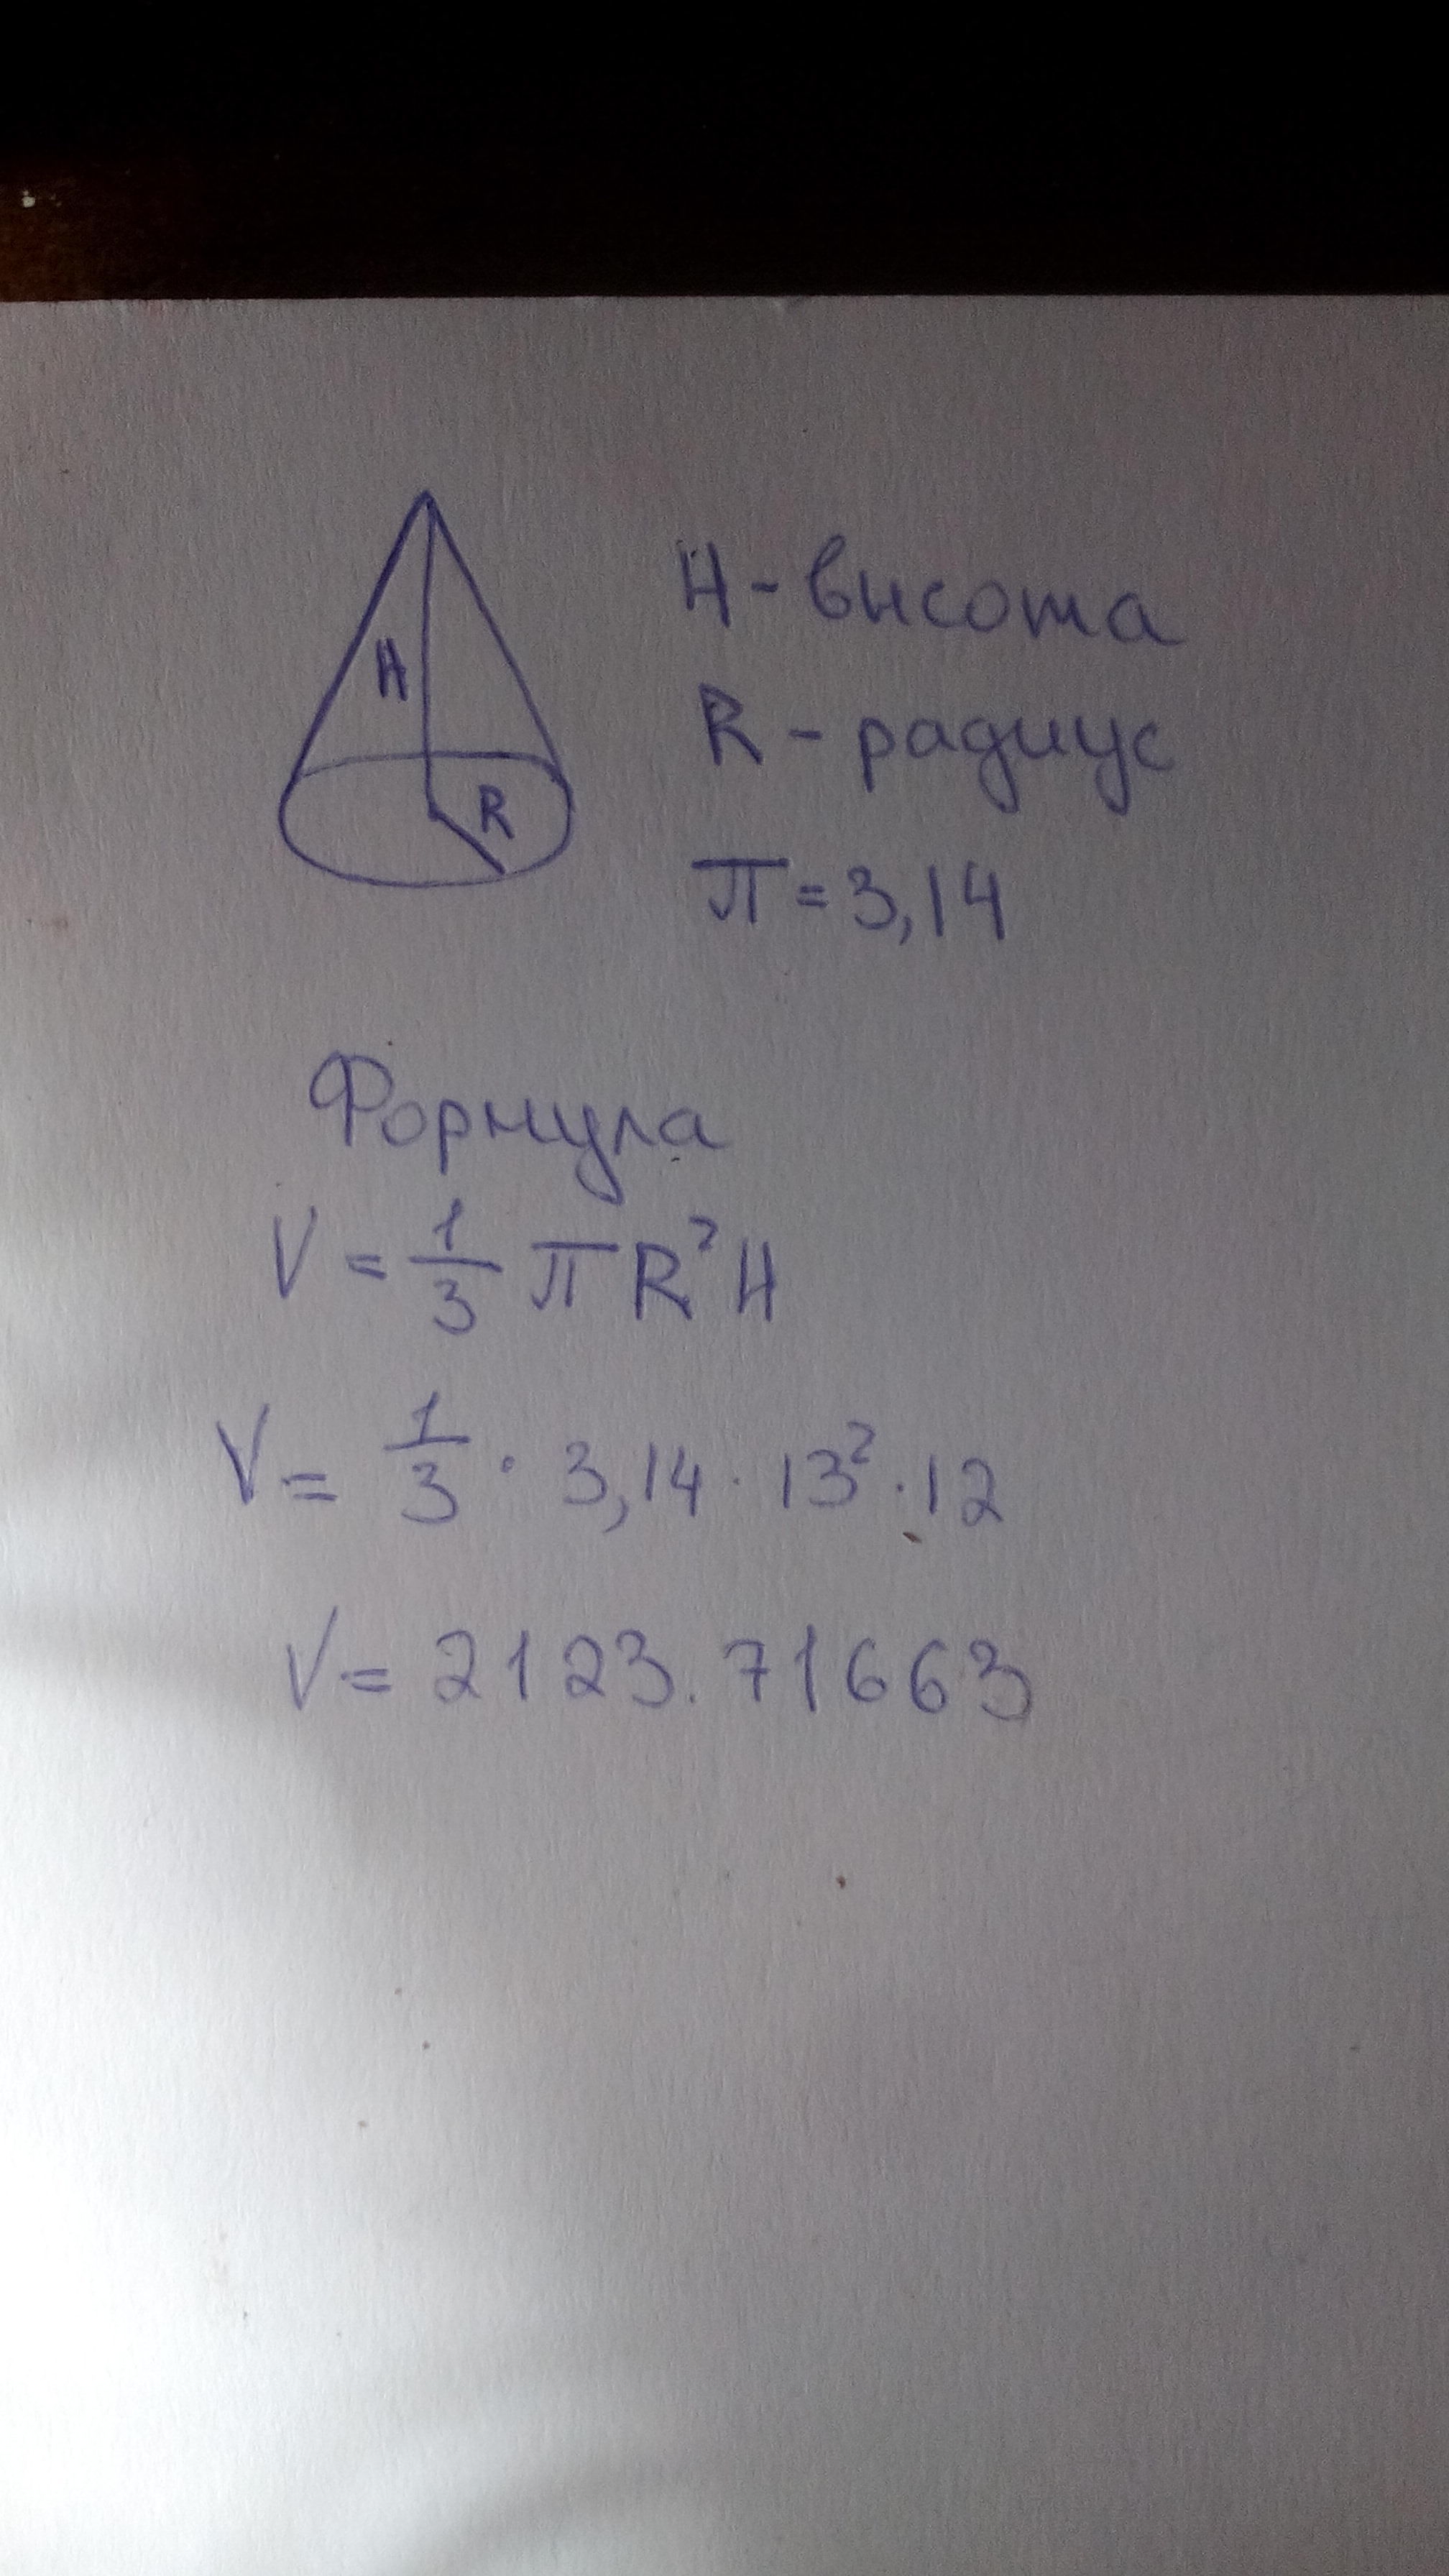 H
R
H - высота
R - радиус
π = 3,14
Формула
V = 1/3 π R² H
V = 1/3 · 3,14 · 13² · 12
V = 2123.71663